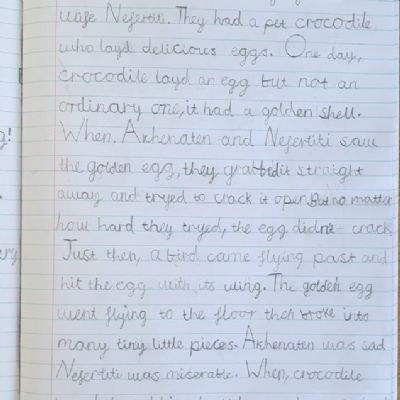 wife Nefertiti. They had a pet crocodile
who layd delicious eggs. One day,
crocodile layd an egg but not an
ordinary one, it had a golden shell.
When, Akhenaten and Nefertiti saw
the golden egg, they grabbed it straight
away and tryed to crack it open. But no matter
how hard they tryed, the egg didn't crack
Just then, a bird came flying past and
hit the egg with its wing. The golden egg
went flying to the floor then broke into
many tiny little pieces. Akhenaten was sad
Nefertiti was miserable. When, crocodile